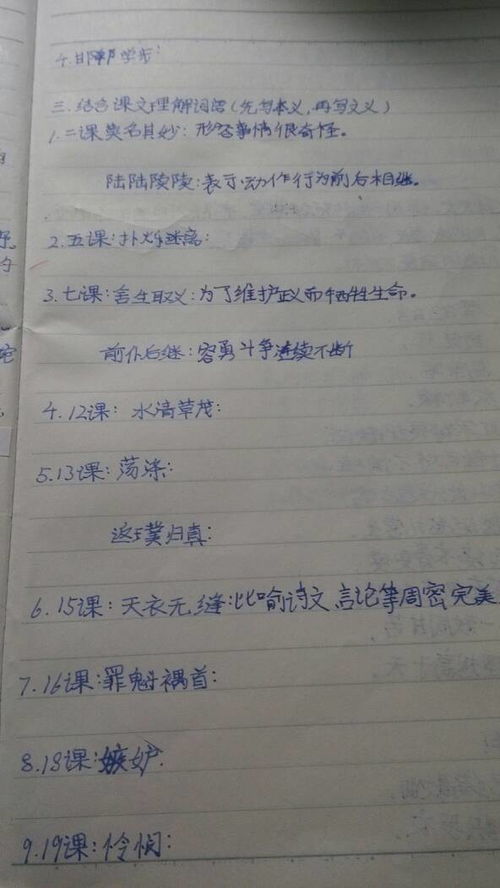 4.邯郸学步:
三.结合课文理解词语(先写本义,再写文义)
1.二课莫名其妙:形容事情很奇怪。
陆陆陵陵:表示动作行为前后相继。
2.五课:扑烁迷离:
3.七课:舍生取义:为了维护正义而牺牲生命。
前仆后继:容勇斗争连续不断
4.12课:水清草茂:
5.13课:荡涤:
返璞归真:
6.15课:天衣无缝:比喻诗文、言论等周密完美
7.16课:罪魁祸首:
8.18课:嫉妒
9.19课:怜悯: